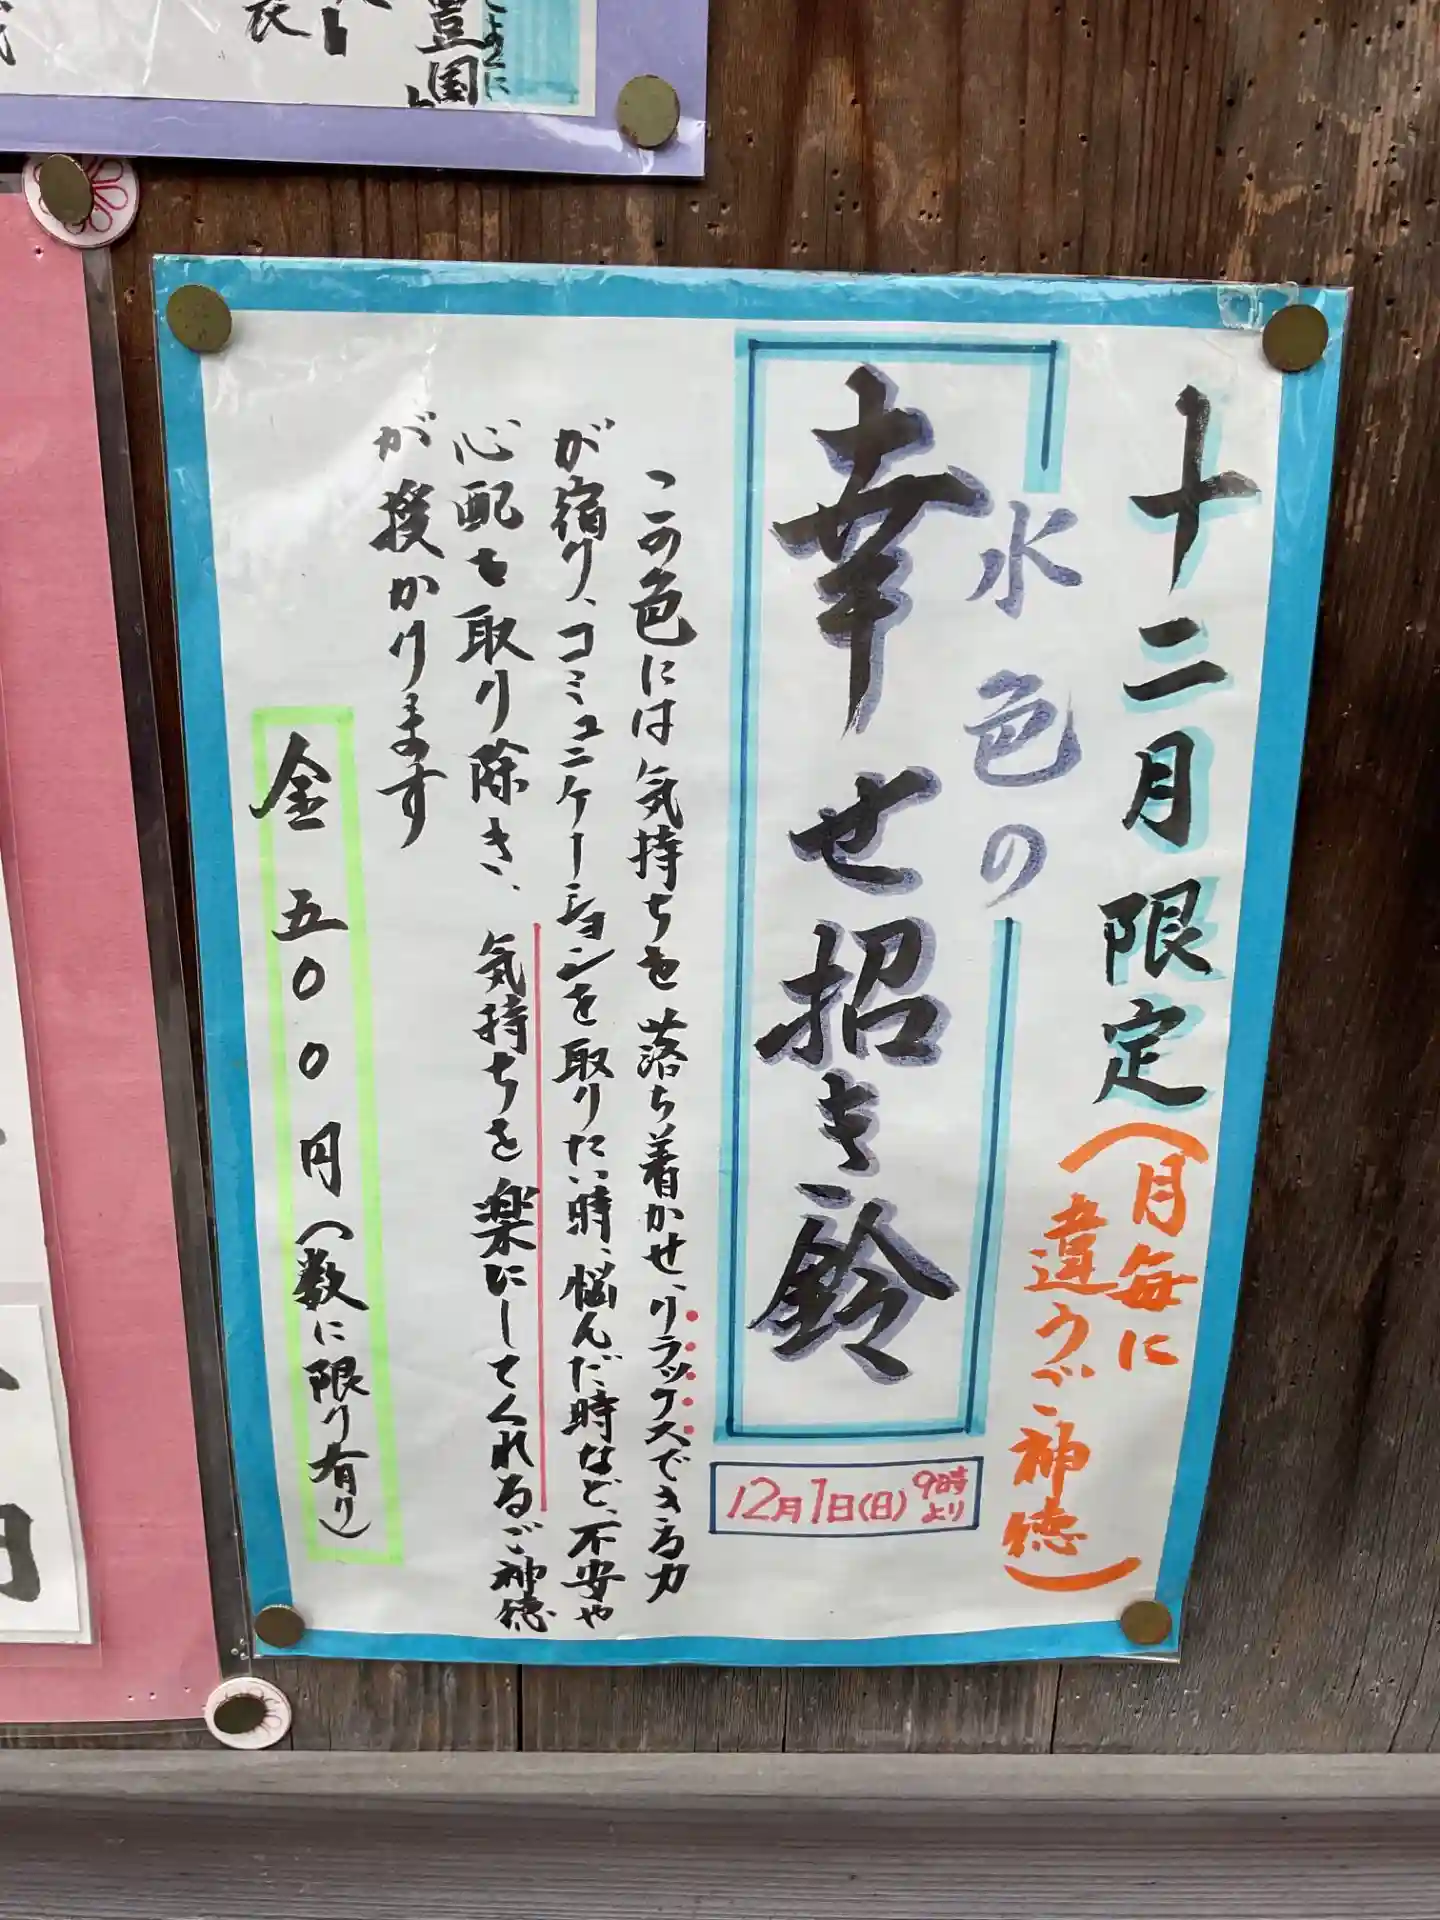 十二月限定(月毎に
違うご神徳)
水色の
幸せ招き鈴
12月1日(日)9時
より
この色には気持ちを落ち着かせ、リラックスできる力
が宿り、コミュニケーションを取りたい時、悩んだ時など、不安や
心配を取り除き、気持ちを楽にしてくれるご神徳
が授かります
金五〇〇円(数に限り有り)
豊国